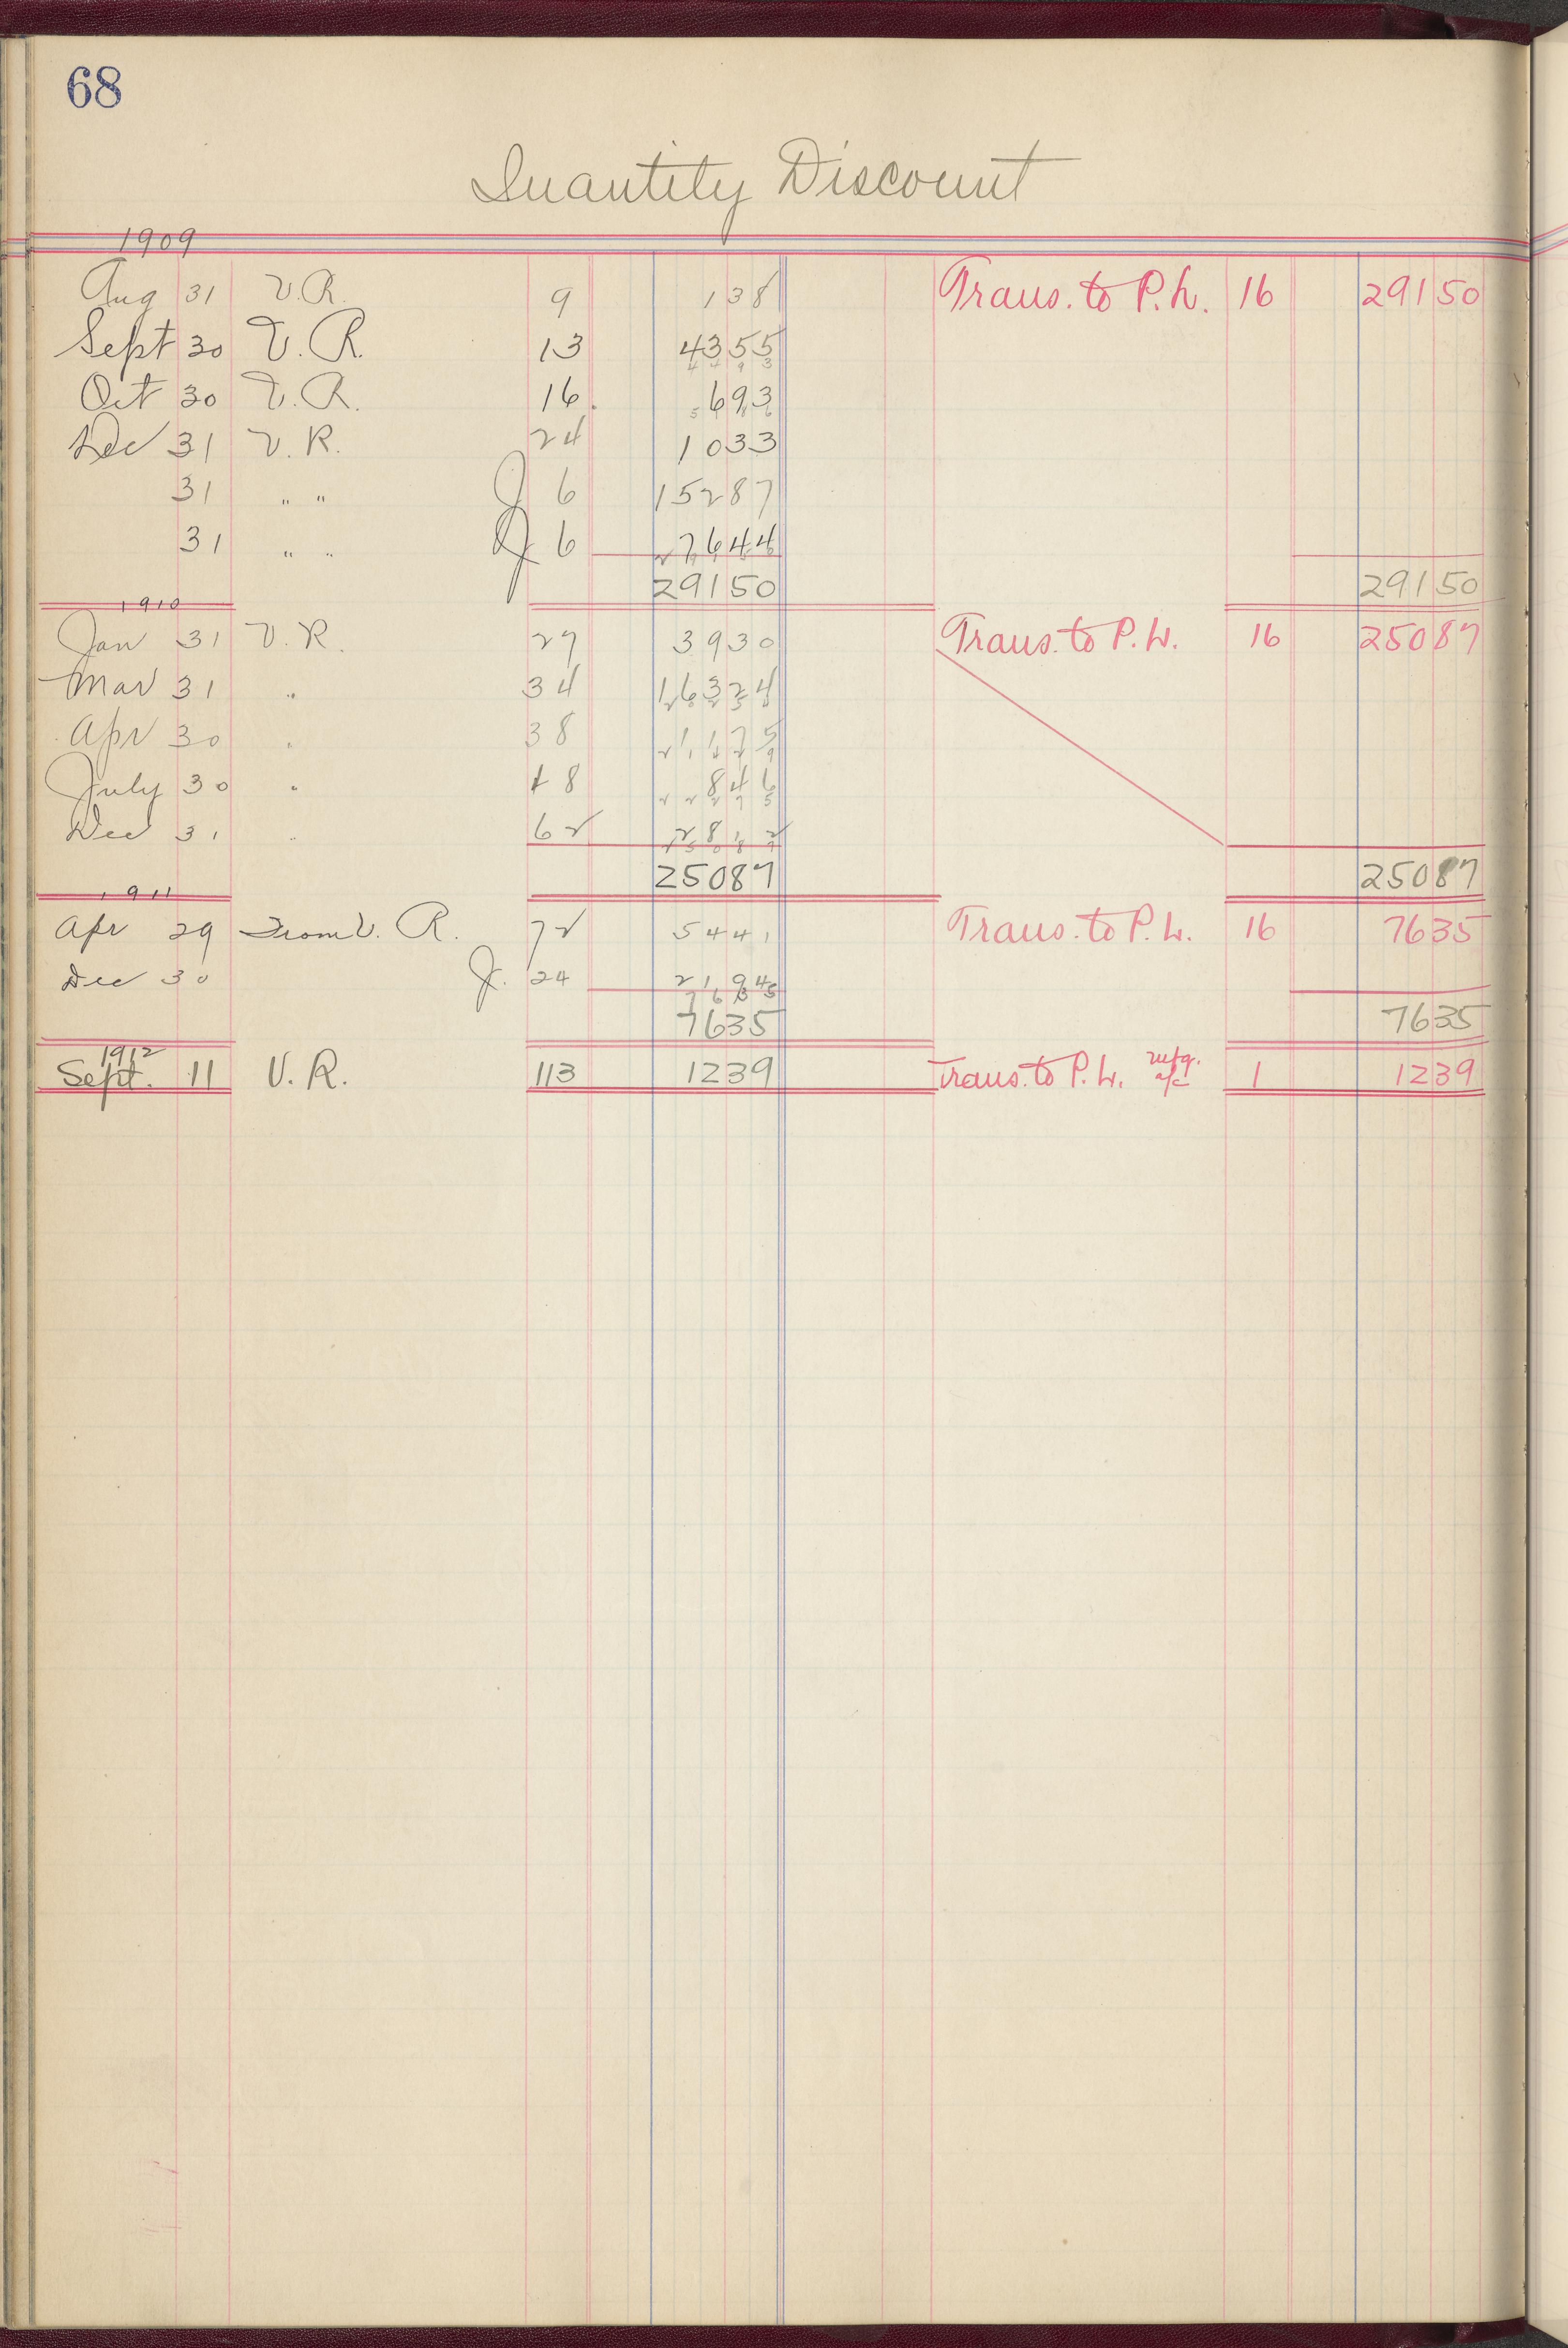 68
Quantity Discount
1909
Aug 31 V.R. 9 138 Trans. to P.L. 16 29150
Sept 30 V.R. 13 4355
4493
Oct 30 V.R. 16. 693
5186
Dec 31 V.R. 24 1033
31 " " J 6 15287
31 " " J 6 7644
29150 29150
1910
Jan 31 V.R. 27 3930 Trans. to P.L. 16 25087
Mar 31 " 34 16324
20254
Apr 30 " 38 1175
21429
July 30 " 48 846
22275
Dec 31 " 62 2812
25087
25087 25087
1911
Apr 29 From V.R. 72 5441 Trans. to P.L. 16 7635
Dec 30 J. 24 2194
7635
7635 7635
1912
Sept. 11 V.R. 113 1239 Trans. to P.L. mfg. a/c 1 1239